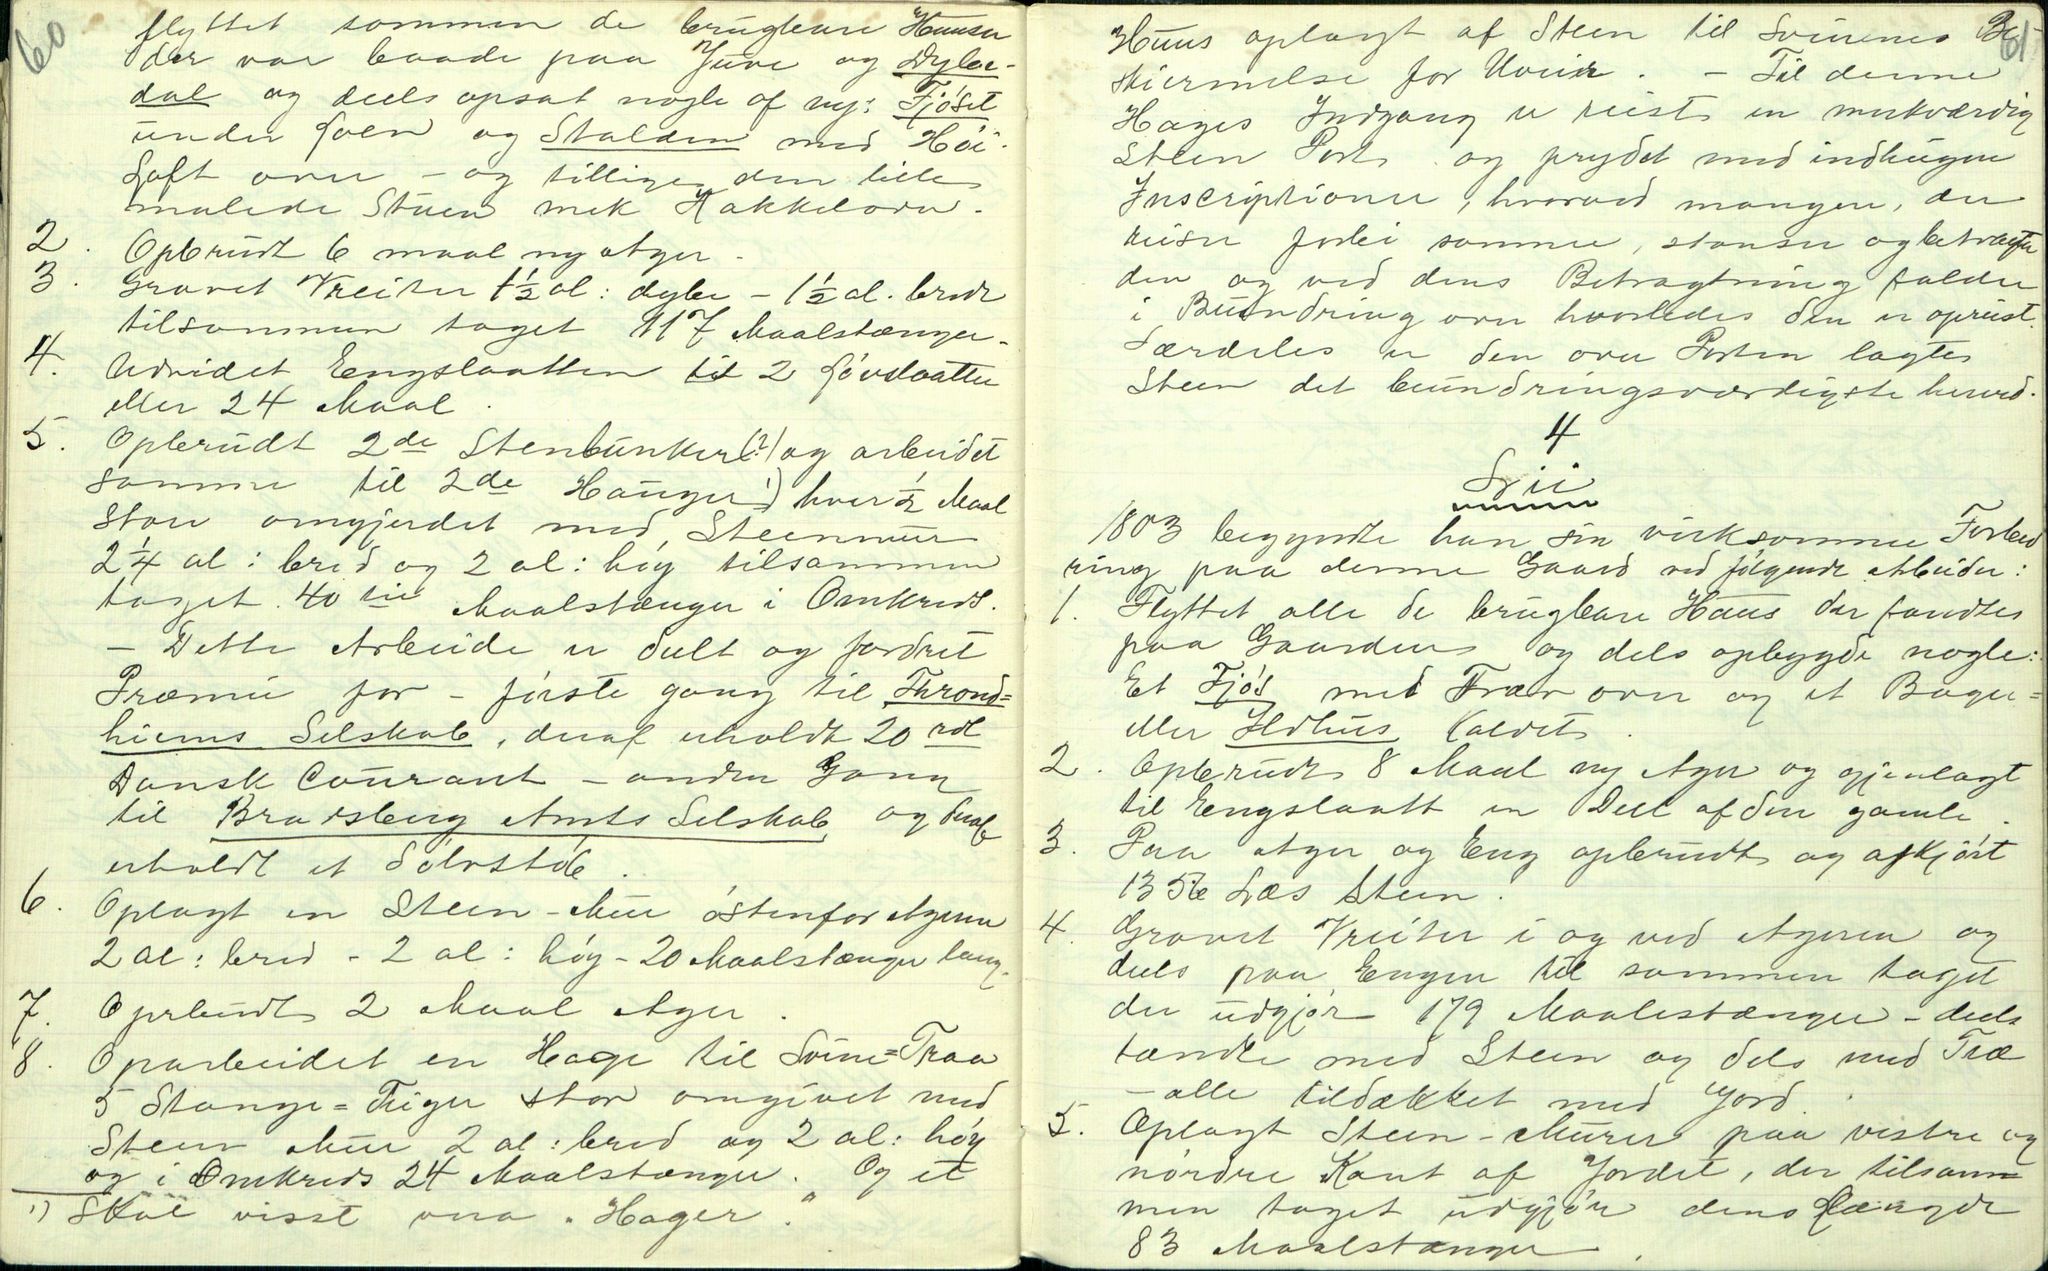 60
flyttet sammen de brugbare Huuser
der var baade paa Juve og Dybe-
dal og deels opsat nogle af ny: Fjöset
under Loen og Stalden med Höi-
Loft over - og tillige den lille
malede Stuen mek Kakkelovn.
2. Opbrudt 6 maal ny Ager.
3. Gravet Vreiter 1½ al: dybe - 1½ al. brede
tilsammen taget 117 Maalstænger.
4. Udvidet Engslaatten til 2 Lövslaatter
eller 24 Maal.
5. Opbrudt 2de Stenbunker(?) og arbeidet
samme til 2de Hauger 1) hver ½ Maal
stor omgjerdet med Steenmuur
2¼ al: bred og 2 al: höy tilsammen
taget 40 tie Maalstænger i Omkreds.
- Dette Arbeide er deelt og fordret
Præmie for - förste gang til Thrond=
hiems Selskab, deraf erholdt 20 rdl
Dansk Courant - anden Gang
til Bradsberg Amts Selskab og deraf
erholdt et Sölvstöb.
6. Oplagt en Steen-Muur östenfor Ageren
2 al: bred - 2 al: höy - 20 Maalstænger lang.
7. Opbrudt 2 Maal Ager.
8. Oparbeidet en Hage til Sviine=Traa
5 Stange=Teiger stor omgivet med
Steen Muur 2 al: bred og 2 al: höy
og i Omkreds 24 Maalstænger. Og et
1) Skal visst vera "Hager."
61
Huus oplagt af Steen til Svinenes Be-
skiermelse for Uveir. - Til denne
Hages Indgang er reist en merkværdig
Steen Port og prydet med indhugne
Inscriptioner, hvorved mangen, der
reiser forbi samme, stanser og betragter
den og ved dens Betragtning falder
i Beundring over hvorledes den er opreist.
Særdeles er den over Porten lagte
Steen det beundringsværdigste herved.
4
Lii
1803 begyndte han sin virksomme Forbed
ring paa denne Gaard ved fölgende Arbeider:
1. Flyttet alle de brugbare Huus der fandtes
paa Gaarden og dels opbygde nogle:
Et Fjös med Træv over og et Bager=
eller Ildhus kaldet.
2. Opbrudt 8 Maal ny Ager og gjenlagt
til Engslaatt en Deel af den gamle.
3. Paa Ager og Eng opbrudt og afkjört
1356 Læs Steen.
4. Gravet Vreiter i og ved Ageren og
deels paa Engen til sammen taget
der udgjör 179 Maalestænger - deels
tændte med Steen og dels med Træ
- alle tildækket med Jord.
5. Oplagt Steen-Murer paa vestre og
nördre Kant af Jordet, der tilsam=
men taget udgjör dens Længde
83 Maalstænger.